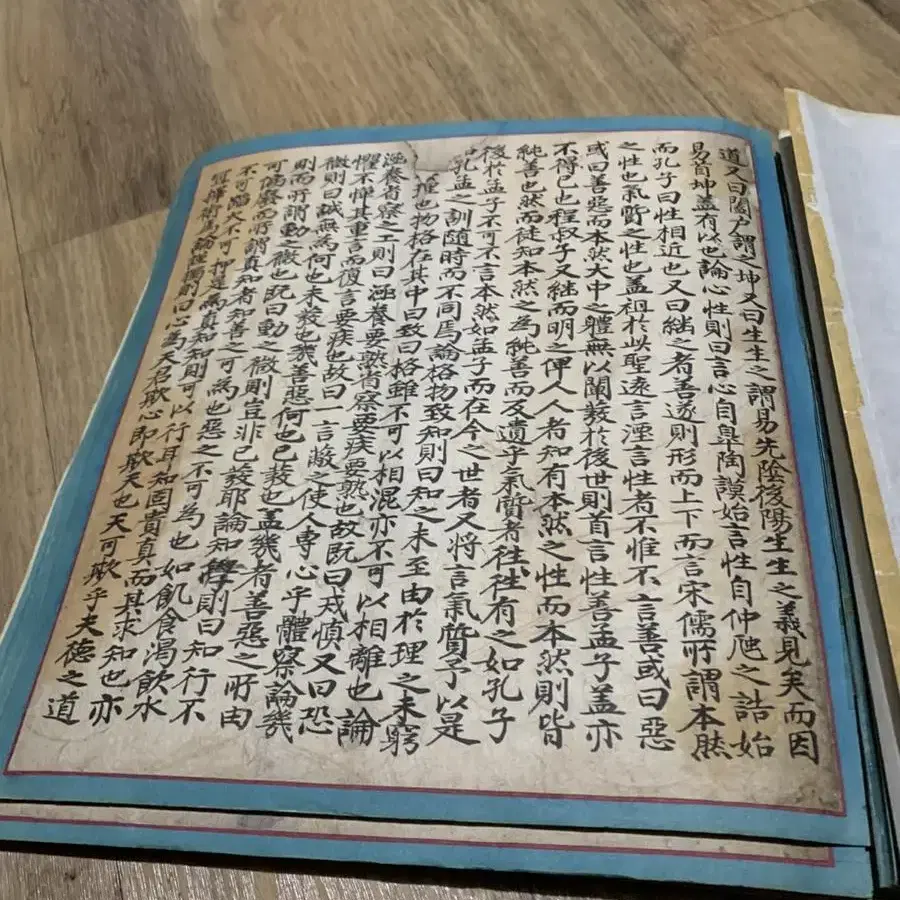 道又曰闔户謂之坤又曰生生之謂易先陰後陽生生之義見矣而因
易首坤盖有以也論心性則曰言心自皐陶謨始言性自仲虺之誥始
而孔子曰性相近也又曰継之者善遂則形而上下而言宋儒所謂本然
之性也氣質之性也盖祖於此聖遠言湮言性者不惟不言善或曰惡
或曰善惡而本然大中之軆無以闡教於後世則首言性善孟子盖亦
不得已也程叔子又継而明之俾人人者知有本然之性而本然則皆
純善也然而徒知本然之為純善而反遺乎氣質者往往有之如孔子
後於孟子不可不言本然如孟子而在今之世者又將言氣質予以是
知孔孟之訓随時而不同焉論格物致知則曰知之未至由於理之未窮
也物格在其中曰致曰格雖不可以相混亦不可以相離也論
涵養省察之工則曰涵養要熟省察要疾要熟也故既曰戒慎又曰恐
懼不憚其重言而復言要疾也故曰一言蔽之使人専心乎軆察論幾
微則曰誠無為何也未發也幾善惡何也已發也盖幾者善惡之所由
則而所謂動之微也既曰動之微則豈非已發耶論知學則曰知行不
可偏廢而所謂真知者知善之可為也惡之不可為也如飢食渴飲水
不可蹈火不可押是為真知知則可以行耳知固貴真而其求知也亦
焉論謹獨則曰心為天君欺心即欺天也天可欺乎夫德之道